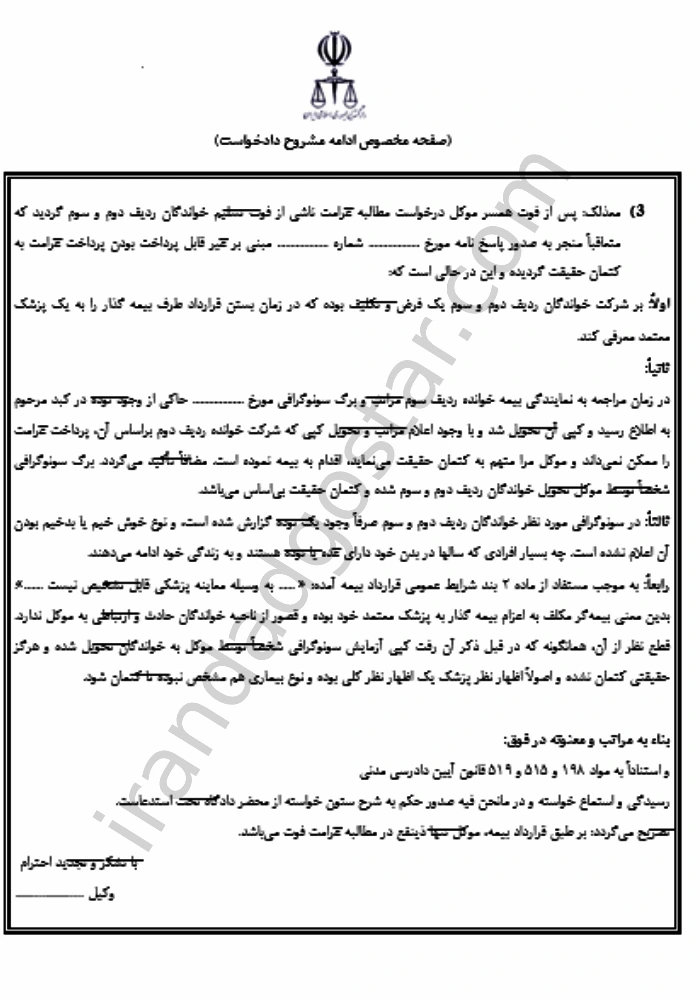 دادگستری جمهوری اسلامی ایران
(صفحه مخصوص ادامه مشروح دادخواست)
3) معذلک: پس از فوت همسر موکل درخواست مطالبه غرامت ناشی از فوت تسلیم خواندگان ردیف دوم و سوم گردید که
متعاقباً منجر به صدور پاسخ نامه مورخ ............ شماره ............ مبنی بر غیر قابل پرداخت بودن پرداخت غرامت به
کتمان حقیقت گردیده و این در حالی است که:
اولاً: بر شرکت خواندگان ردیف دوم و سوم یک فرض و تکلیف بوده که در زمان بستن قرارداد طرف بیمه گذار را به یک پزشک
معتمد معرفی کند.
ثانیاً:
در زمان مراجعه به نمایندگی بیمه خوانده ردیف سوم مراتب و برگ سونوگرافی مورخ ............ حاکی از وجود توده در کبد مرحوم
به اطلاع رسید و کپی آن تحویل شد و با وجود اعلام مراتب و تحویل کپی که شرکت خوانده ردیف دوم براساس آن، پرداخت غرامت
را ممکن نمی‌داند و موکل مرا متهم به کتمان حقیقت می‌نماید، اقدام به بیمه نموده است. مضافاً تأکید می‌گردد. برگ سونوگرافی
شخصاً توسط موکل تحویل خواندگان ردیف دوم و سوم شده و کتمان حقیقت بی‌اساس می‌باشد.
ثالثاً: در سونوگرافی مورد نظر خواندگان ردیف دوم و سوم صرفاً وجود یک توده گزارش شده است، و نوع خوش خیم یا بدخیم بودن
آن اعلام نشده است. چه بسیار افرادی که سالها در بدن خود دارای غده یا توده هستند و به زندگی خود ادامه می‌دهند.
رابعاً: به موجب مستفاد از ماده ۲ بند شرایط عمومی قرارداد بیمه آمده: «.... به وسیله معاینه پزشکی قابل تشخیص نیست .....»
بدین معنی بیمه‌گر مکلف به اعزام بیمه گذار به پزشک معتمد خود بوده و قصور از ناحیه خواندگان حادث و ارتباطی به موکل ندارد.
قطع نظر از آن، همانگونه که در قبل ذکر آن رفت کپی آزمایش سونوگرافی شخصاً توسط موکل به خواندگان تحویل شده و هرگز
حقیقتی کتمان نشده و اصولاً اظهار نظر پزشک یک اظهار نظر کلی بوده و نوع بیماری هم مشخص نبوده تا کتمان شود.
بناء به مراتب و معنونه در فوق:
و استناداً به مواد ۱۹۸ و ۵۱۵ و ۵۱۹ قانون آیین دادرسی مدنی
رسیدگی و استماع خواسته و در مانحن فیه صدور حکم به شرح ستون خواسته از محضر دادگاه تحت استدعاست.
تصریح می‌گردد: بر طبق قرارداد بیمه، موکل تنها ذینفع در مطالبه غرامت فوت می‌باشد.
با تشکر و تجدید احترام
وکیل ................
irandadgostar.com